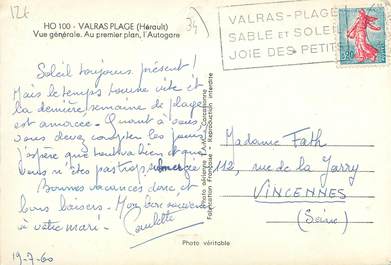 12t
34
HO 100 - VALRAS PLAGE (Hérault)
Vue générale. Au premier plan, l'Autogare
VALRAS-PLAGE
SABLE et SOLEIL
JOIE DES PETITS
0,20
Soleil toujours présent !
Mais le temps tourne vite et
la dernière semaine de plage
est amorcée - Quant à vous
vous devez compter les jours
j'espère que tout va bien et que
vous n'êtes pas trop submergée
Bonnes vacances donc et
bons baisers. Mon bon souvenir
à votre mari - Paulette
19-7-60
Photo aérienne
Carcassonne
Fabrication Française - Reproduction interdite
Madame Fath
112, rue de la Jarry
VINCENNES
(Seine)
Photo véritable